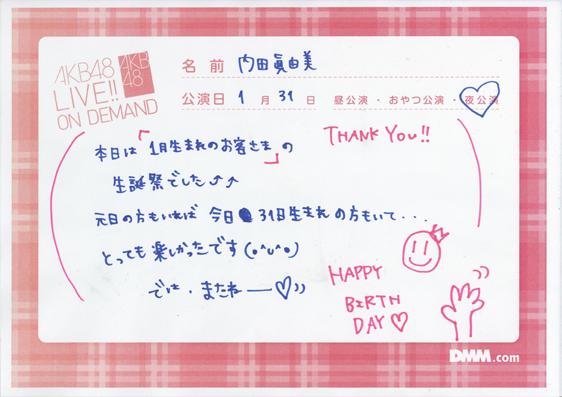 AKB48
LIVE!!
ON DEMAND
AKB
48
名前 内田眞由美
公演日 1月31日 昼公演・おやつ公演・夜公演
THANK YOU!!
本日は「1月生まれのお客さま」の
生誕祭でした⤴⤴
元日の方もいれば 今日31日生まれの方もいて...
とっても楽しかったです(o^u^o)
では、またねー♡))
HAPPY
BIRTH
DAY♡
DMM.com